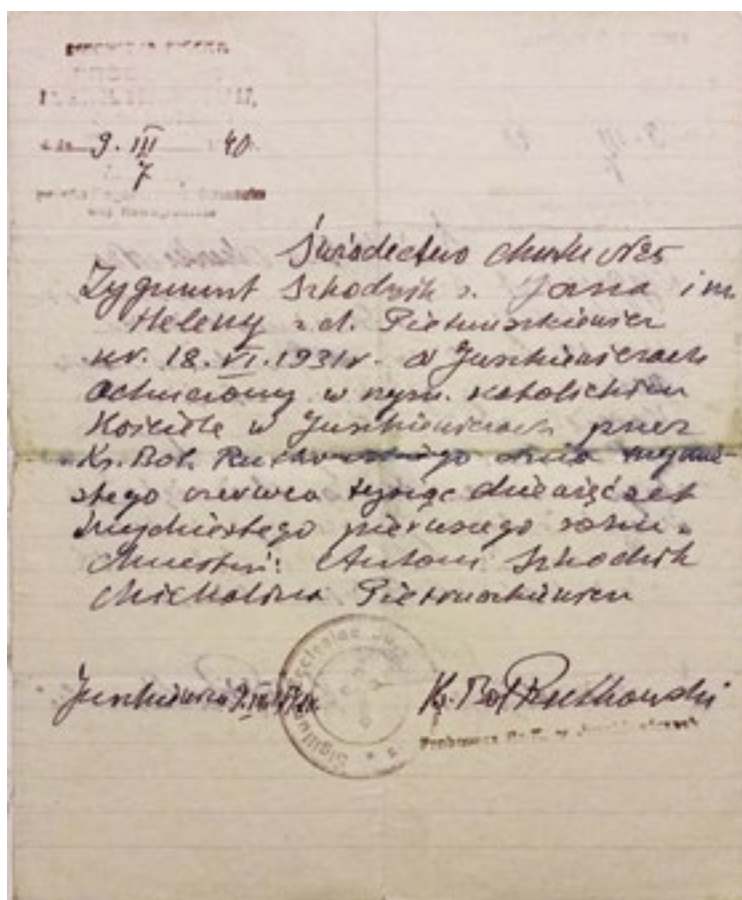 9. III 40.
7
Świadectwo chrztu № 5
Zygmunt Szkodzik s. Jana i m.
Heleny z d. Pietruszkiewicz
ur. 18.VI.1931r. w Juszkiewiczach
ochrzczony w rzym. katolickim
Kościele w Juszkiewiczach przez
Ks. Bol. Rutkowskiego dnia trzydzie-
stego czerwca tysiąc dziewięćset
trzydziestego pierwszego roku.
Chrzestni: Antoni Szkodzik
Michalina Pietruszkiewicz
Juszkiewicze 9.III
Ks. Bol Rutkowski
Proboszcz
Sigillum